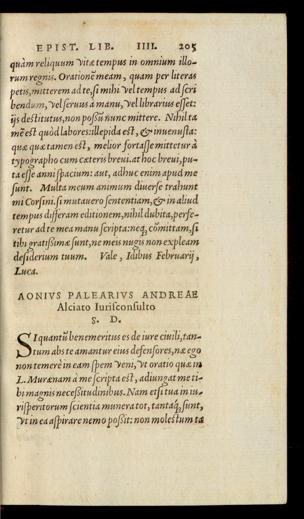 EPIST. LIB. IIII. 205
quàm reliquum vitæ tempus in omnium illo-
rum regnis. Orationẽ meam, quam per literas
petis, mitterem ad te, si mihi vel tempus ad scri
bendum, vel seruus à manu, vel librarius esset:
ijs destitutus, non possũ nunc mittere. Nihil ta
mẽ est quòd labores: illepida est, & inuenusta:
quæ quæ tamen est, melior fortasse mittetur à
typographo cum cæteris breui. at hoc breui, pu-
ta esse anni spacium: aut, adhuc enim apud me
sunt. Multa meum animum diuerse trahunt
mi Corsini. si mutauero sententiam, & in aliud
tempus differam editionem, nihil dubita, perfe-
retur ad te mea manu scripta: neq, cõmittam, si
tibi gratissimæ sunt, ne meis nugis non expleam
desiderium tuum. Vale, Idibus Februarij,
Luca.
AONIVS PALEARIVS ANDREAE
Alciato Iurisconsulto
S. D.
SI quantũ benemeritus es de iure ciuili, tan-
tum abs te amantur eius defensores, næ ego
non temerè in eam spem veni, vt oratio quæ in
L. Murænam à me scripta est, adiungat me ti-
bi magnis necessitudinibus. Nam etsi tua in iu-
risperitorum scientia munera tot, tantáq, sunt,
vt in ea aspirare nemo possit: non molestum ta